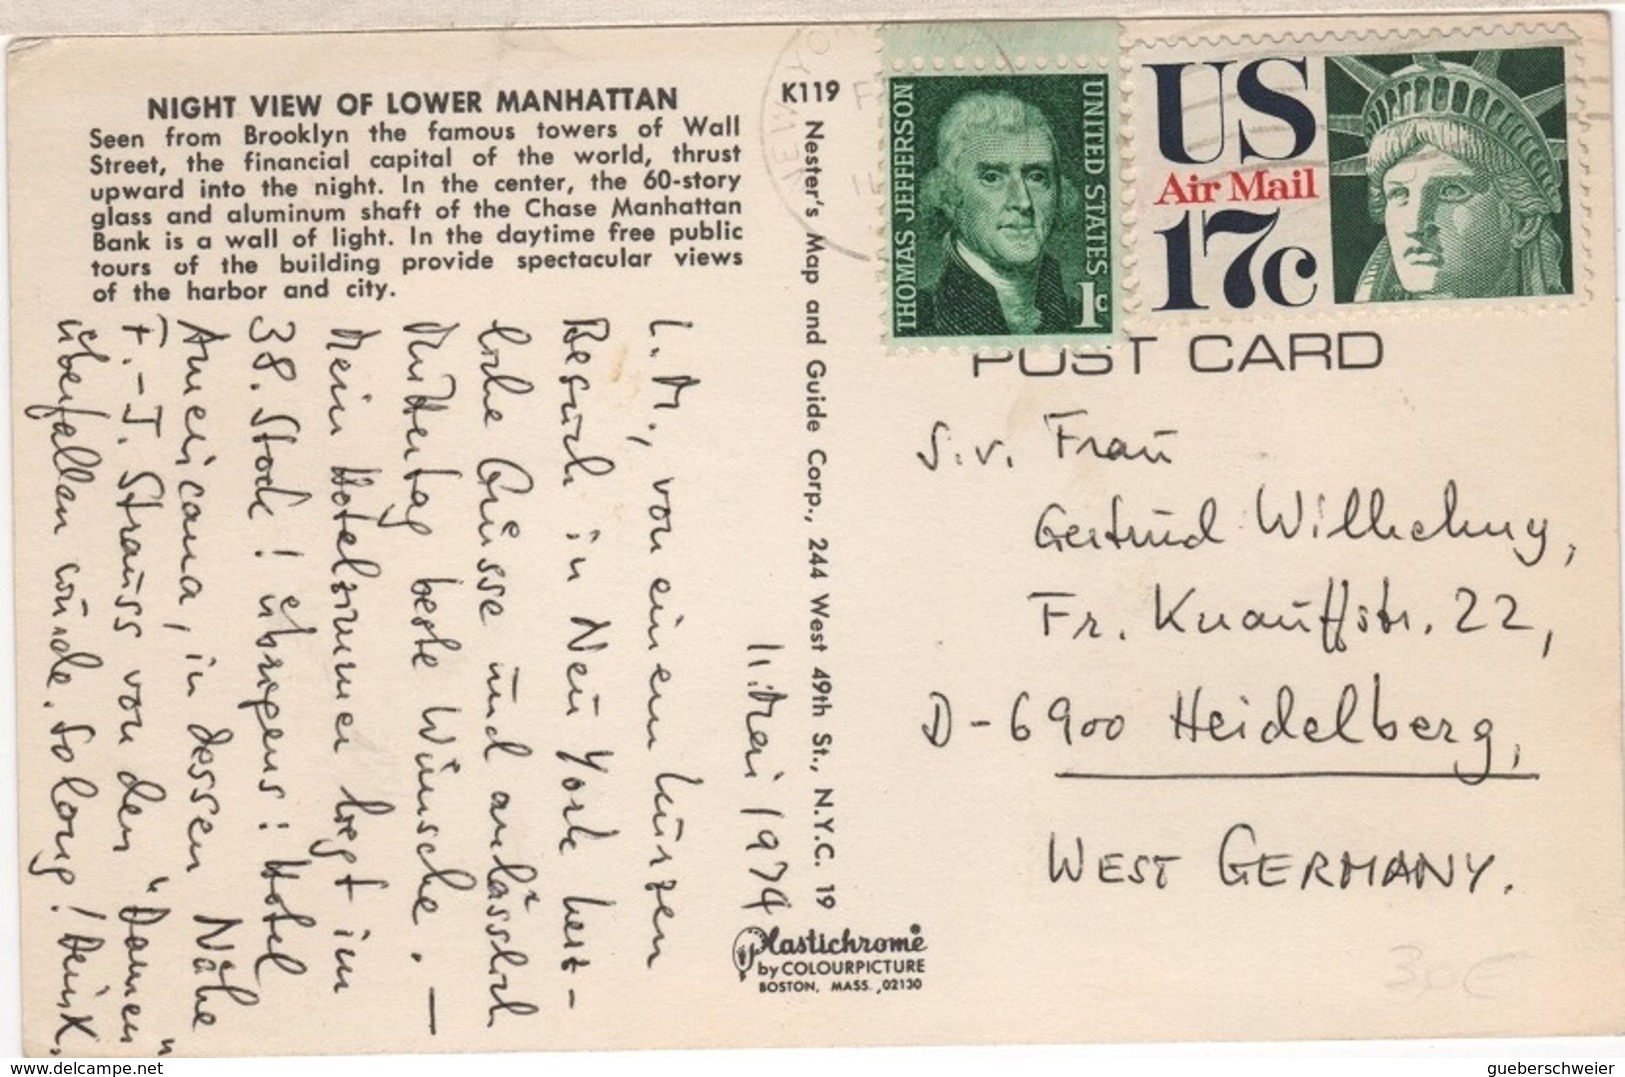 NIGHT VIEW OF LOWER MANHATTAN
Seen from Brooklyn the famous towers of Wall
Street, the financial capital of the world, thrust
upward into the night. In the center, the 60-story
glass and aluminum shaft of the Chase Manhattan
Bank is a wall of light. In the daytime free public
tours of the building provide spectacular views
of the harbor and city.
11. Mai 1974
L. M., von einem kurzen
Besuch in Neu York herz-
liche Grüsse und anlässlich
Muttertag beste Wünsche. —
Mein Hotelzimmer liegt im
38. Stock! übrigens: Hotel
Americana, in dessen Nähe
F.-J. Strauss von den "Damen"
überfallen wurde. So long!
K119
Nester's Map and Guide Corp., 244 West 49th St., N.Y.C. 19
Plastichrome®
by COLOURPICTURE
BOSTON, MASS., 02130
NEW YO
THOMAS JEFFERSON
UNITED STATES
1c
US
Air Mail
17c
POST CARD
S.v. Frau
Gertrud
Fr. Knauffstr. 22,
D-6900 Heidelberg,
WEST GERMANY.
delcampe.net
gueberschweier